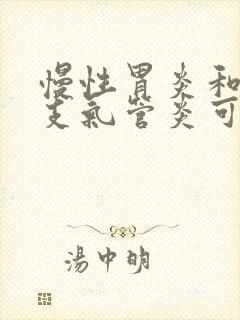 慢性胃炎和
支氣管炎可
湯中明